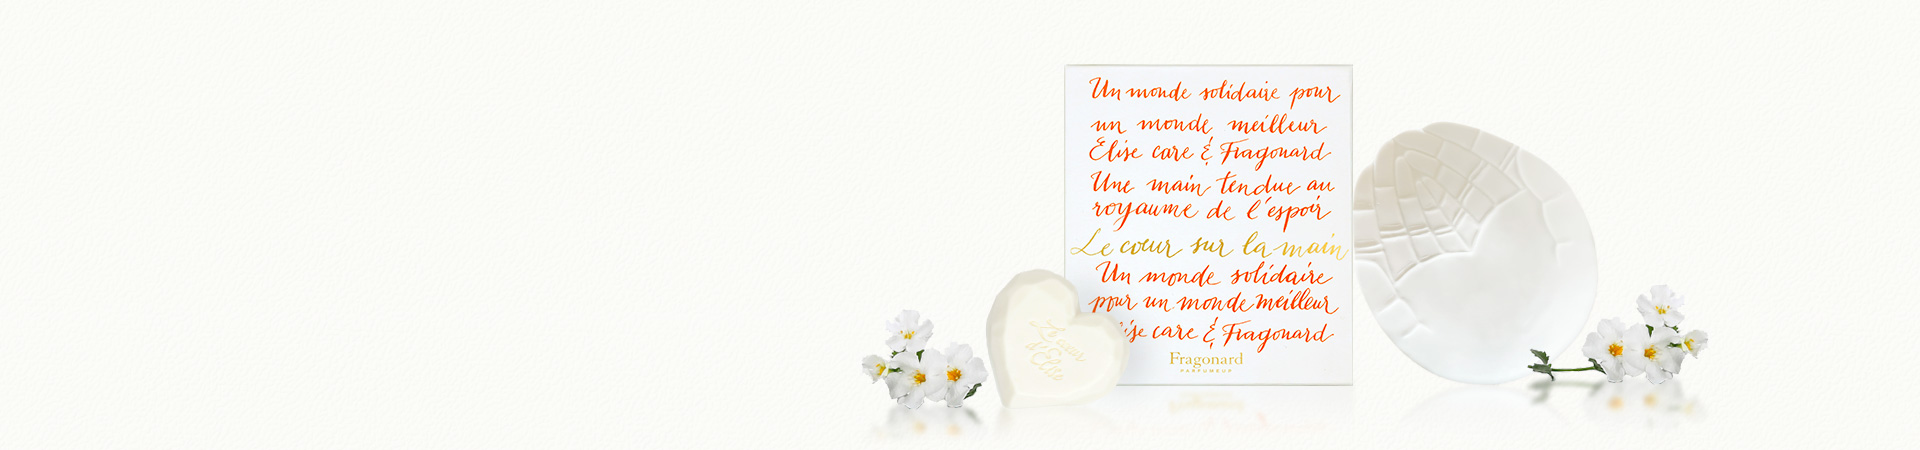 Un monde solidaire pour
un monde meilleur
Elise care & Fragonard
Une main tendue au
royaume de l'espoir
Le cœur sur la main
Un monde solidaire
pour un monde meilleur
lise care & Fragonard
Fragonard
PARFUMEUR
Le cœur
d'Elise